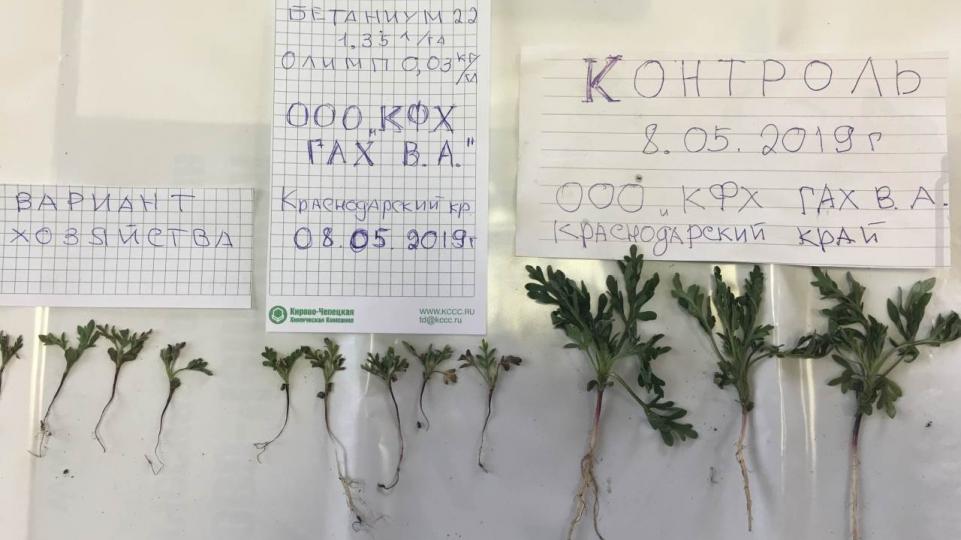 ВАРИАНТ
ХОЗЯЙСТВА
БЕТАНИУМ 22
1.35 л/га
ОЛИМП 0,03 кг/га
ООО "КФХ
ГАХ В.А."
Краснодарский кр.
08.05.2019г
Кирово-Чепецкая
Химическая Компания
WWW.KCCC.RU
td@kccc.ru
КОНТРОЛЬ
8.05.2019г
ООО "КФХ ГАХ В.А.
Краснодарский край